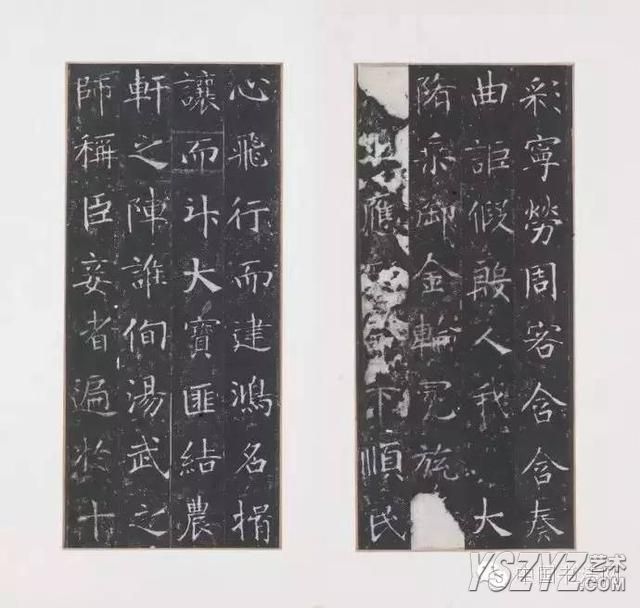 彩寧勞周客含含奏
曲詎假殷人我 大
隋乘御金輪冕旒
上應 命下順民
心飛行而建鴻名揖
讓而升大寶匪結農
軒之陣誰徇湯武之
師稱臣妾者遍於十
YSZYZ艺术